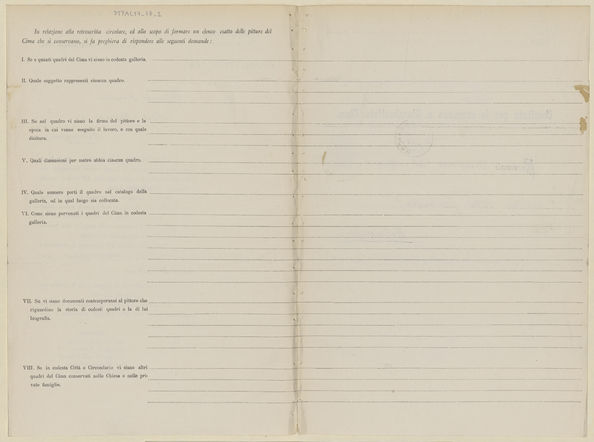 In relazione alla retroscritta circolare, ed allo scopo di formare un elenco esatto delle pitture del
Cima che si conservano, si fa preghiera di rispondere alle seguenti domande:
I. Se e quanti quadri del Cima vi siano in codesta galleria.
II. Quale soggetto rappresenti ciascun quadro.
III. Se nel quadro vi siano la firma del pittore e la
epoca in cui venne eseguito il lavoro, e con quale
dicitura.
V. Quali dimensioni per metro abbia ciascun quadro.
IV. Quale numero porti il quadro nel catalogo della
galleria, ed in qual luogo sia collocato.
VI. Come siano pervenuti i quadri del Cima in codesta
galleria.
VII. Se vi siano documenti contemporanei al pittore che
riguardino la storia di codesti quadri o la di lui
biografia.
VIII. Se in codesta Città o Circondario vi siano altri
quadri del Cima conservati nelle Chiese o nelle pri-
vate famiglie.